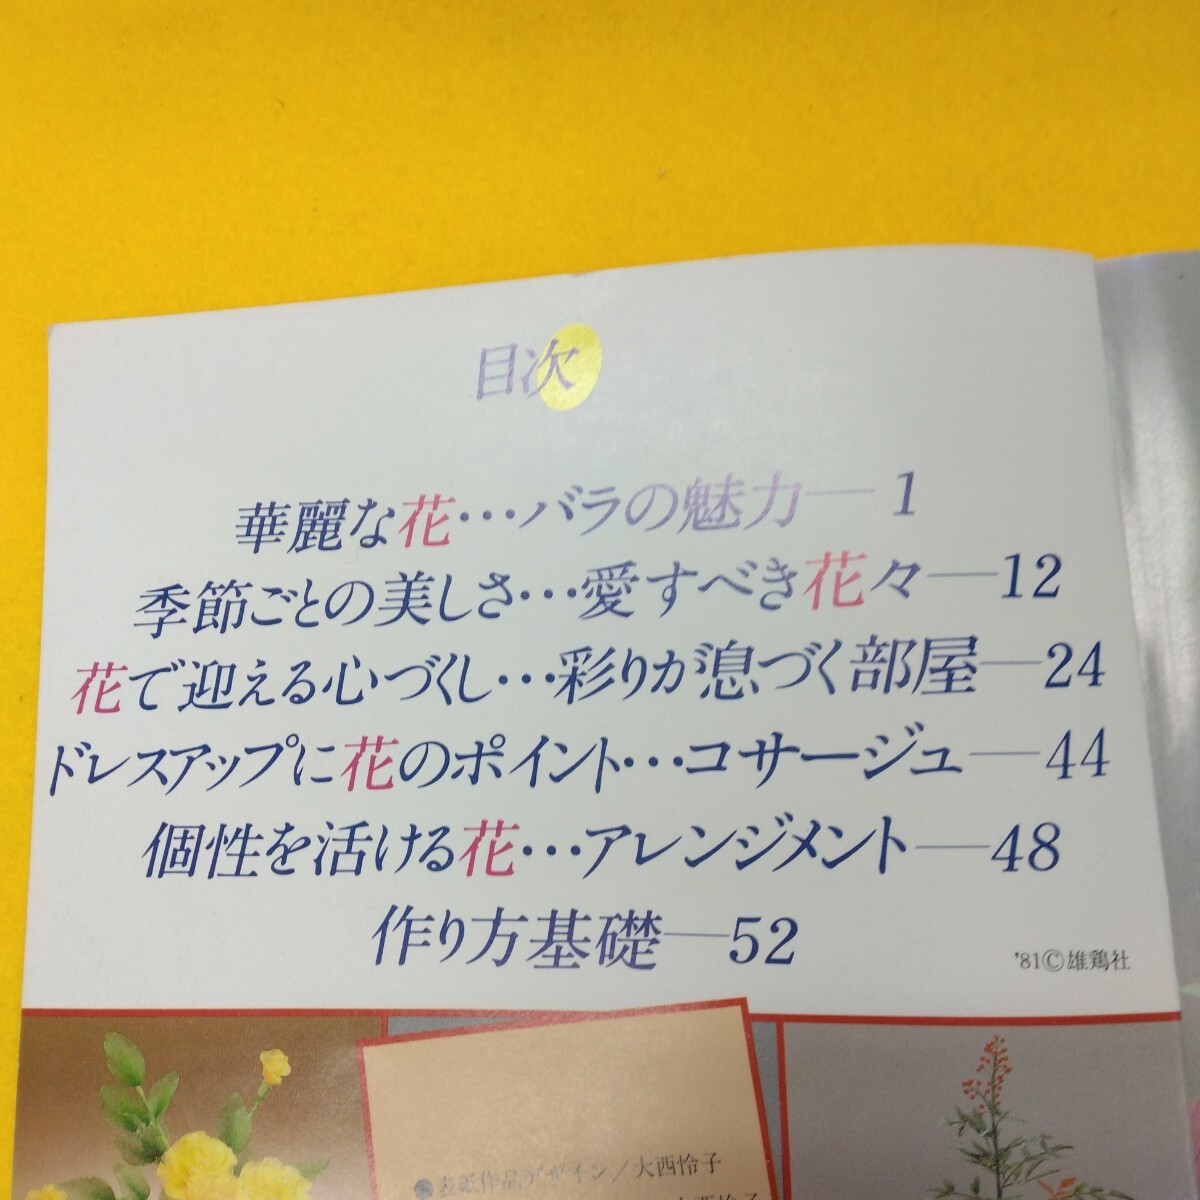 目次
華麗な花…バラの魅力―1
季節ごとの美しさ…愛すべき花々―12
花で迎える心づくし…彩りが息づく部屋―24
ドレスアップに花のポイント…コサージュ―44
個性を活ける花…アレンジメント―48
作り方基礎―52
'81©雄鶏社
●表紙作品デザイン/大西怜子